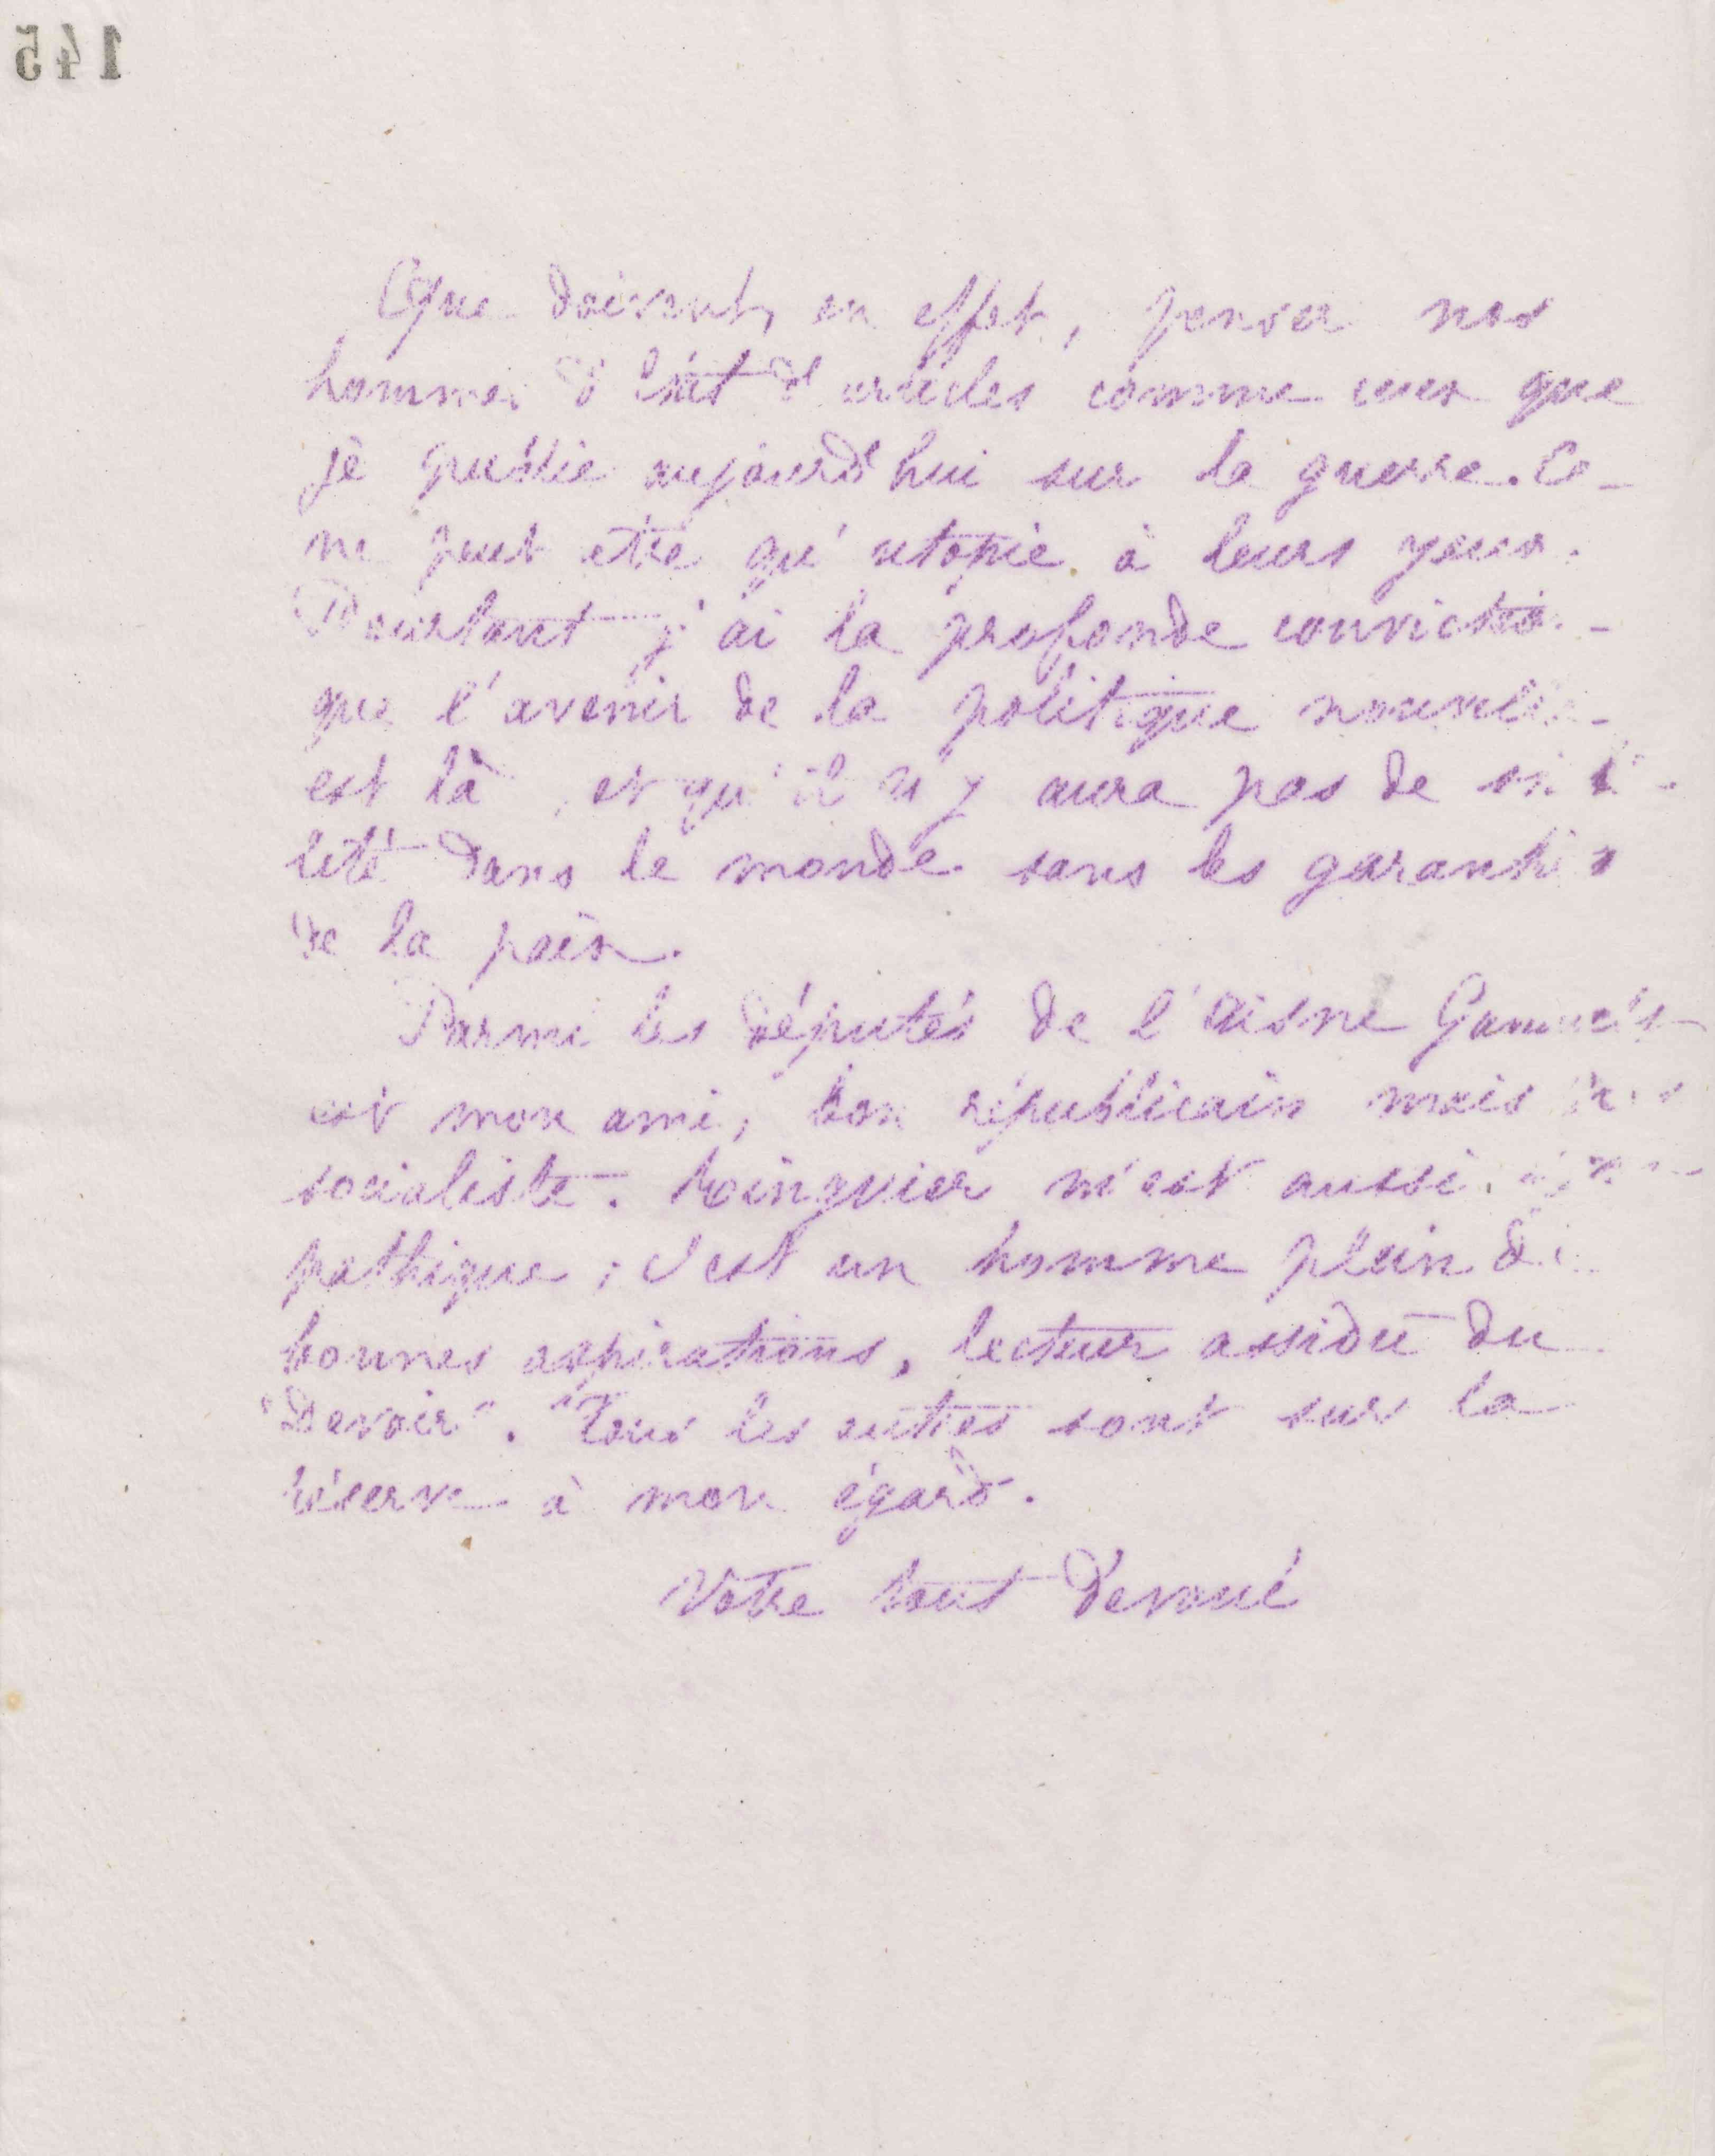 145
Que doivent, en effet, penser nos
hommes d'État d'articles comme ceux que
je publie aujourd'hui sur la guerre. Ce
ne peut etre qu'utopie à leurs yeux.
Pourtant j'ai la profonde convictio
que l'avenir de la politique nouvelle
est là, et qu'il n'y aura pas de
lité dans le monde sans les garanties
de la paix.
Parmi les députés de l'Aisne
est mon ami, bon républicain mais
socialiste. m'est aussi
pathique ; c'est un homme plein de
bonnes aspirations, lecteur assidu du
"Devoir". Tous les autres sont sur la
réserve à mon égard.
Votre tout dévoué